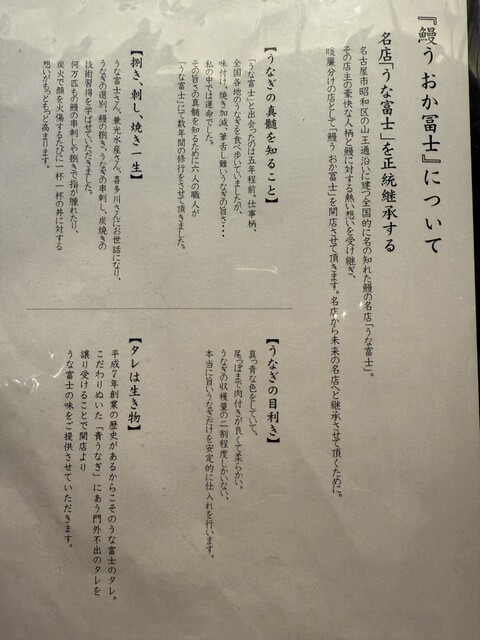 『鰻う おか冨士』について
名店「うな富士」を正統継承する
名古屋市昭和区の山王通沿いに建つ全国的に名の知れた鰻の名店「うな富士」。
その店主の豪快な人柄と鰻に対する熱い想いを受け継ぎ、
暖簾分けの店として「鰻う おか冨士」を開店させて頂きます。名店から未来の名店へと継承させて頂くために。
【うなぎの真髄を知ること】
「うな富士」と出会ったのは五年程前、仕事柄、
全国各地のうなぎを食べ歩いていましたが、
味付け、焼き加減、筆舌し難いうなぎの旨さ・・・
私の中では運命でした。
その旨さの真髄を知るために六人の職人が
「うな富士」にて数年間の修行をさせて頂きました。
【捌き、刺し、焼き一生】
うな富士さん、兼光水産さん、喜多川さんにお世話になり、
うなぎの選別、鰻の捌き、うなぎの串刺し、炭焼きの
技術習得を学ばせていただきました。
何万匹もの鰻の串刺しや捌きで指が腫れたり、
炭火で顔を火傷するたびに一杯一杯の丼に対する
想いがもっともっと高まります。
【うなぎの目利き】
真っ青な色をしていて、
尾っぽまで肉付きが良くて柔らかい。
うなぎの収穫量の二割程度しかいない、
本当に旨いうなぎだけを安定的に仕入れを行います。
【タレは生き物】
平成7年創業の歴史があるからこそのうな富士のタレ。
こだわりぬいた「青うなぎ」にあう門外不出のタレを
譲り受けることで開店より
うな富士の味をご提供させていただきます。